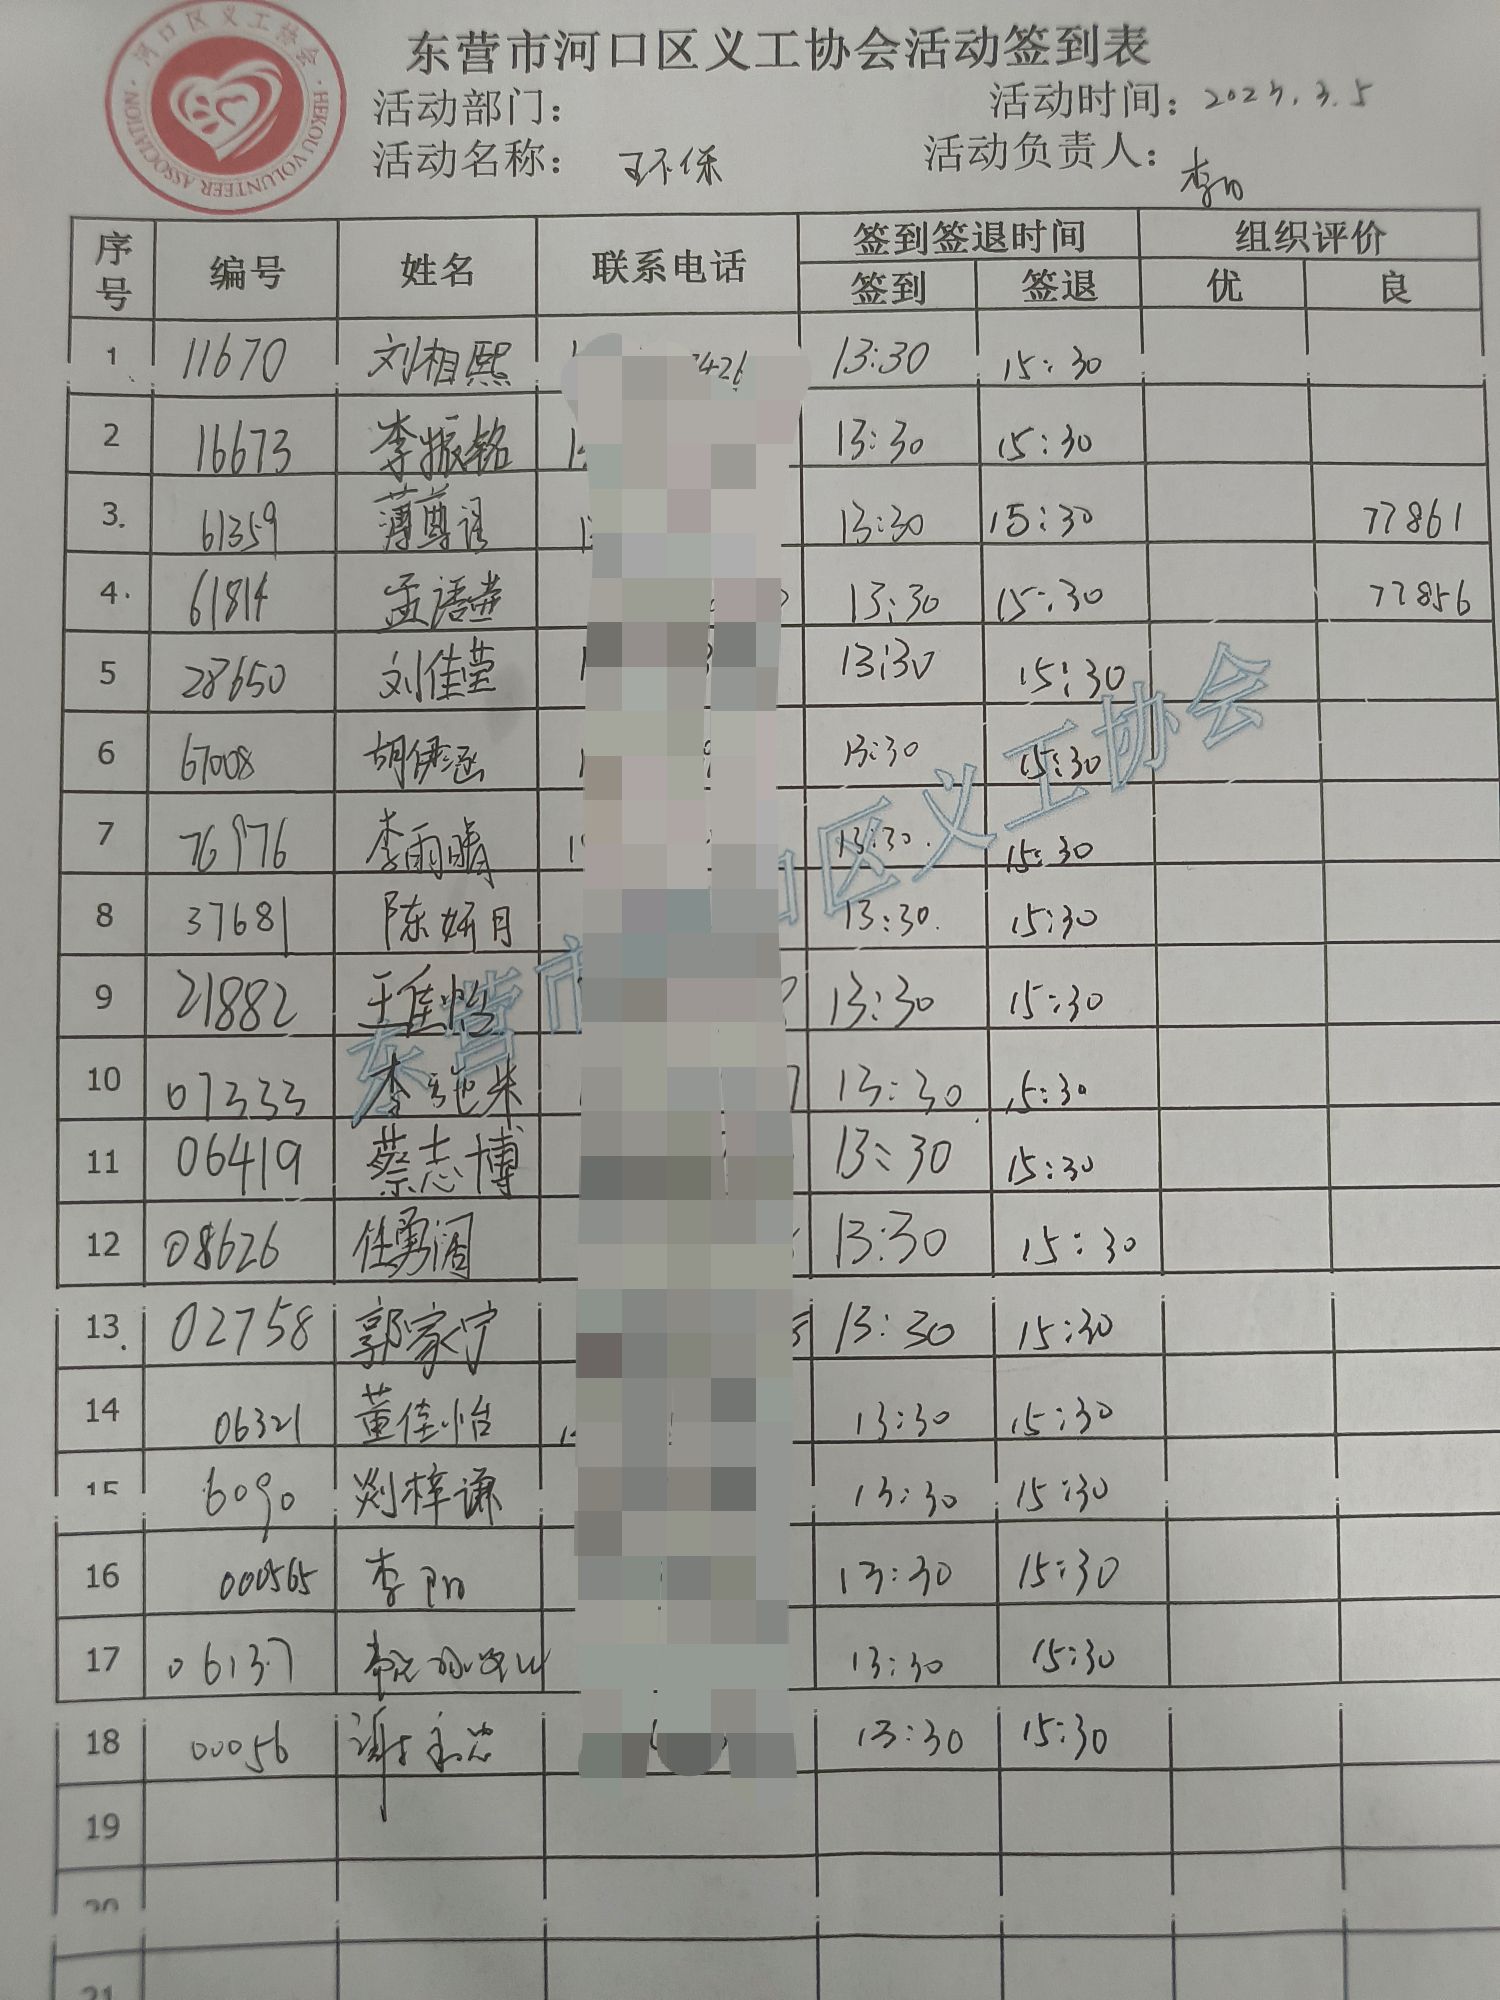 河口区义工协会
HEKOU VOLUNTEER ASSOCIATION
东营市河口区义工协会活动签到表
活动部门：
活动时间：2023.3.5
活动名称：环保
活动负责人：李阳
序号 编号 姓名 联系电话 签到签退时间 组织评价
签到 签退 优 良
1 11670 刘相熙 13:30 15:30
2 16673 李振铭 13:30 15:30
3. 61359 薄尊语 13:30 15:30 77861
4. 61814 孟语萱 13:30 15:30 77856
5 28650 刘佳莹 13:30 15:30
6 67008 胡伊涵 13:30 15:30
7 76976 李雨晴 13:30. 15:30
8 37681 陈妍月 13:30. 15:30
9 21882 王佳怡 13:30 15:30
10 07333 李 13:30 15:30
11 06419 蔡志博 13:30 15:30
12 08626 任勇阔 13:30 15:30
13. 02758 郭家宁 13:30 15:30
14 06321 董佳怡 13:30 15:30
15 6090 刘梓谦 13:30 15:30
16 000565 李阳 13:30 15:30
17 06137 13:30 15:30
18 00056 谢 13:30 15:30
19
20
21
东营市 口区义工协会